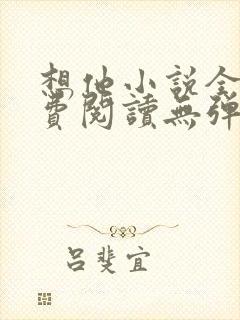 想他小說全
費閱讀無彈
呂斐宜